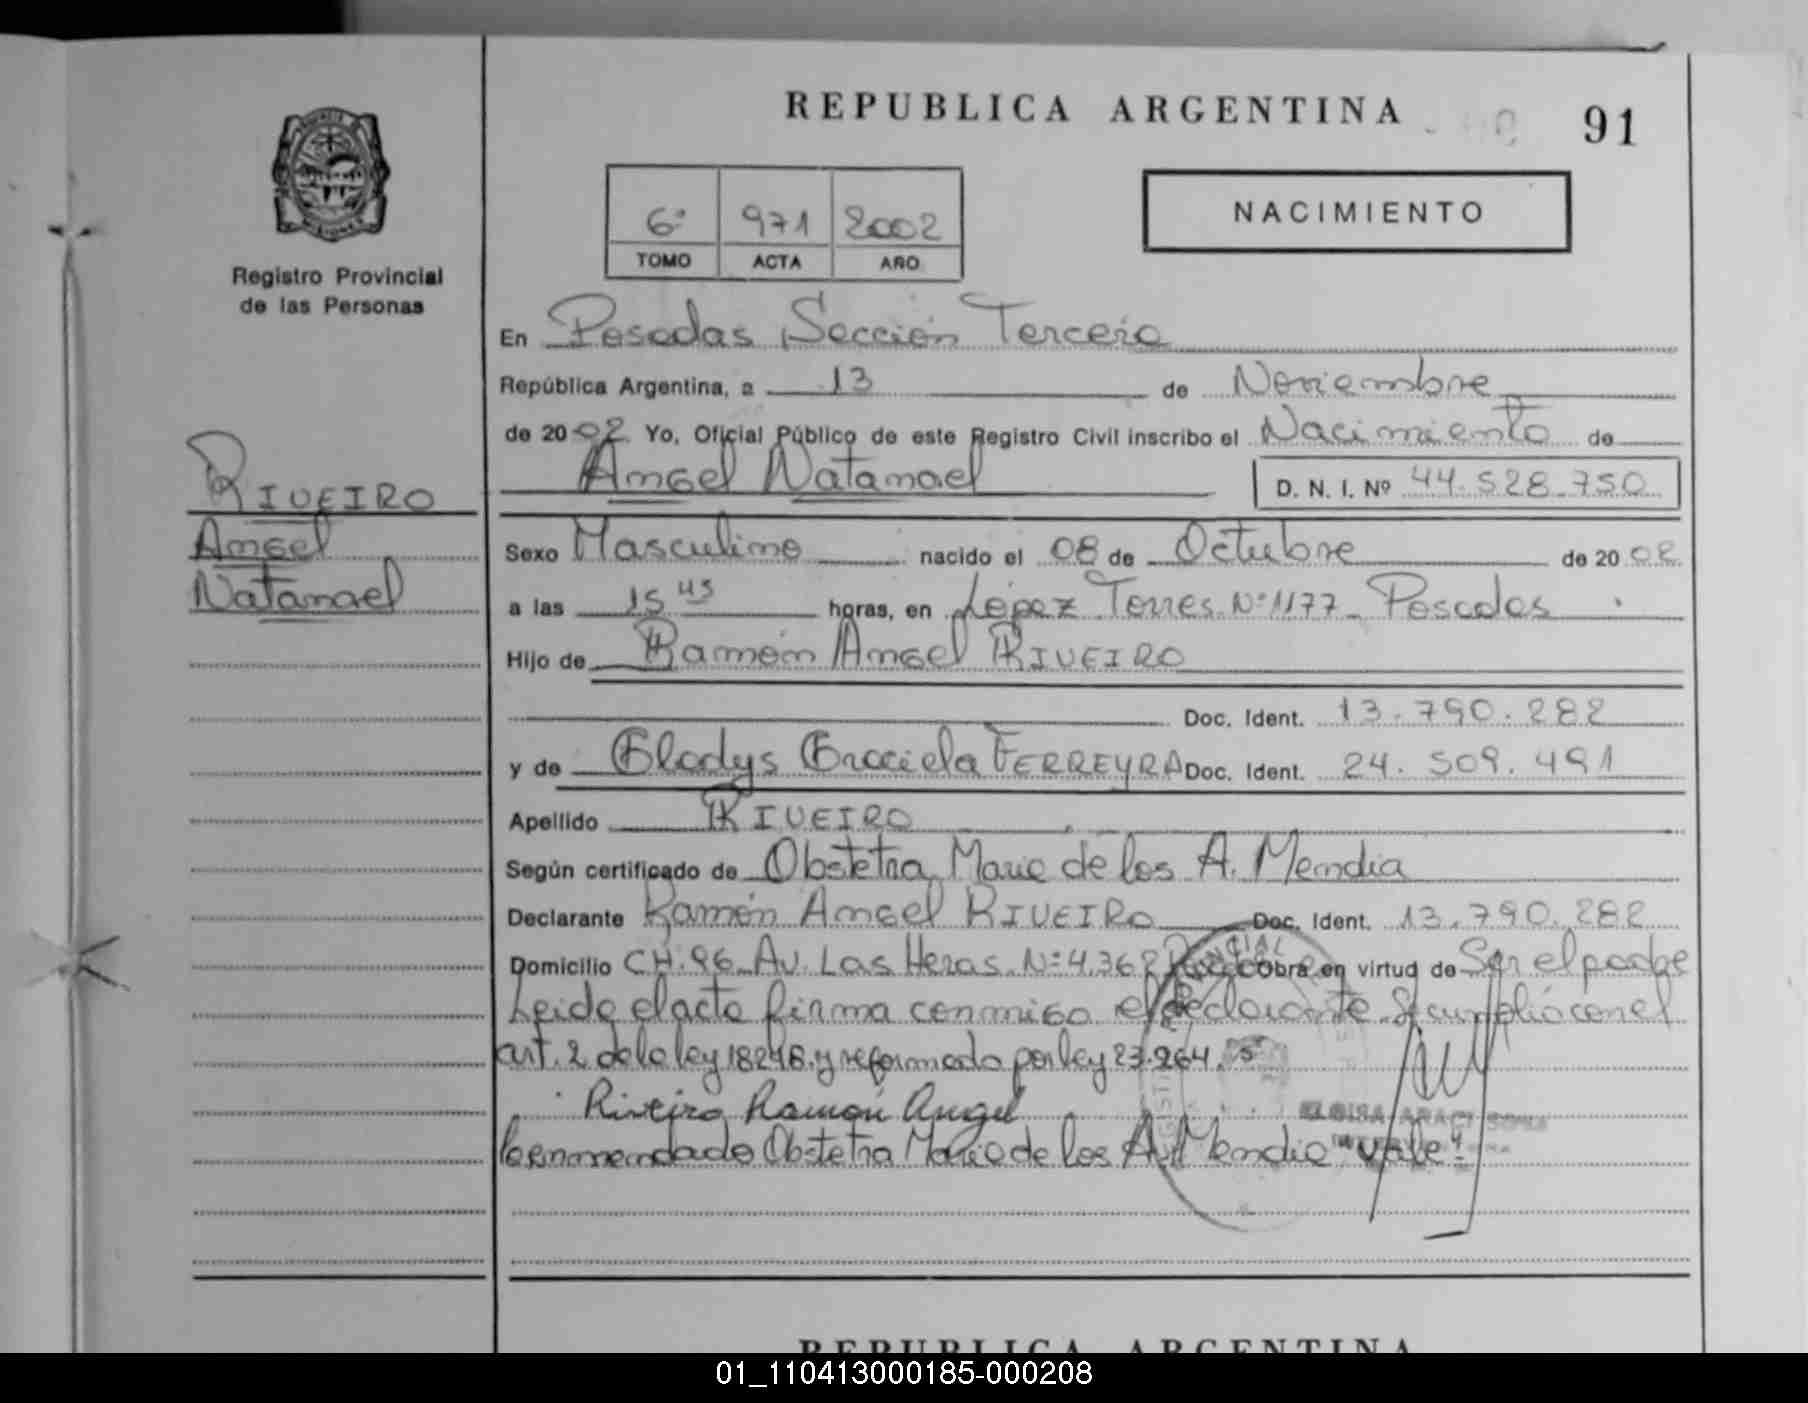 REPUBLICA ARGENTINA
91
6º 971 2002
TOMO ACTA AÑO
NACIMIENTO
Registro Provincial
de las Personas
En Posadas Sección Tercera
República Argentina, a 13 de Noviembre
de 2002 Yo, Oficial Público de este Registro Civil inscribo el Nacimiento de
Angel Natanael D. N. I. Nº 44.528.750
RIVEIRO
Angel
Natanael
Sexo Masculino nacido el 08 de Octubre de 2002
a las 15 45 horas, en López Torres Nº 1177 Posadas
Hijo de Ramón Angel RIVEIRO
Doc. Ident. 13.790.282
y de Gladys Graciela FERREYRA Doc. Ident. 24.509.491
Apellido RIVEIRO
Según certificado de Obstetra Maria de los A. Mendia
Declarante Ramón Angel RIVEIRO Doc. Ident. 13.790.282
Domicilio CH. 96 Av. Las Heras Nº 4.362 Obra en virtud de Ser el padre
Leida el acta firma conmigo el declarante. Se cumplió con el
art. 2 de la ley 18248 y reformada por ley 23.264.
Riveiro Ramón Angel
Lo enmendado Obstetra Maria de los A. Mendia "Vale"
REPUBLICA ARGENTINA
01_110413000185-000208